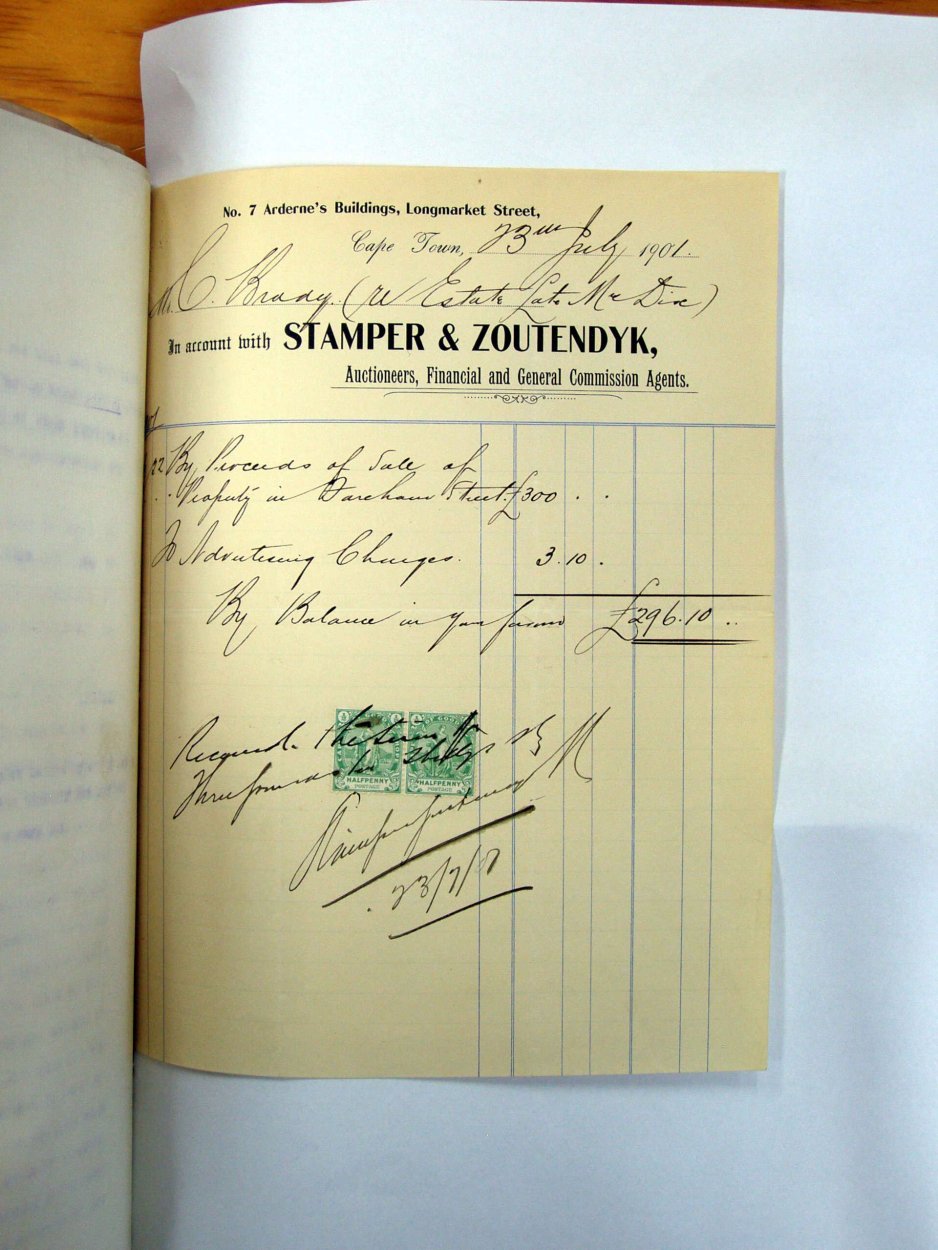 No. 7 Arderne's Buildings, Longmarket Street,
Cape Town, 23rd July 1901.
C. Brady. (re Estate Late Mr Dix)
In account with STAMPER & ZOUTENDYK,
Auctioneers, Financial and General Commission Agents.
22 By Proceeds of Sale of
Property in Street. £300 . .
To Advertising Charges. 3.10 .
By Balance in your favour £296.10 ..
Received the sum of
Three pounds ten shillings
HALFPENNY HALFPENNY
POSTAGE POSTAGE
23/7/01